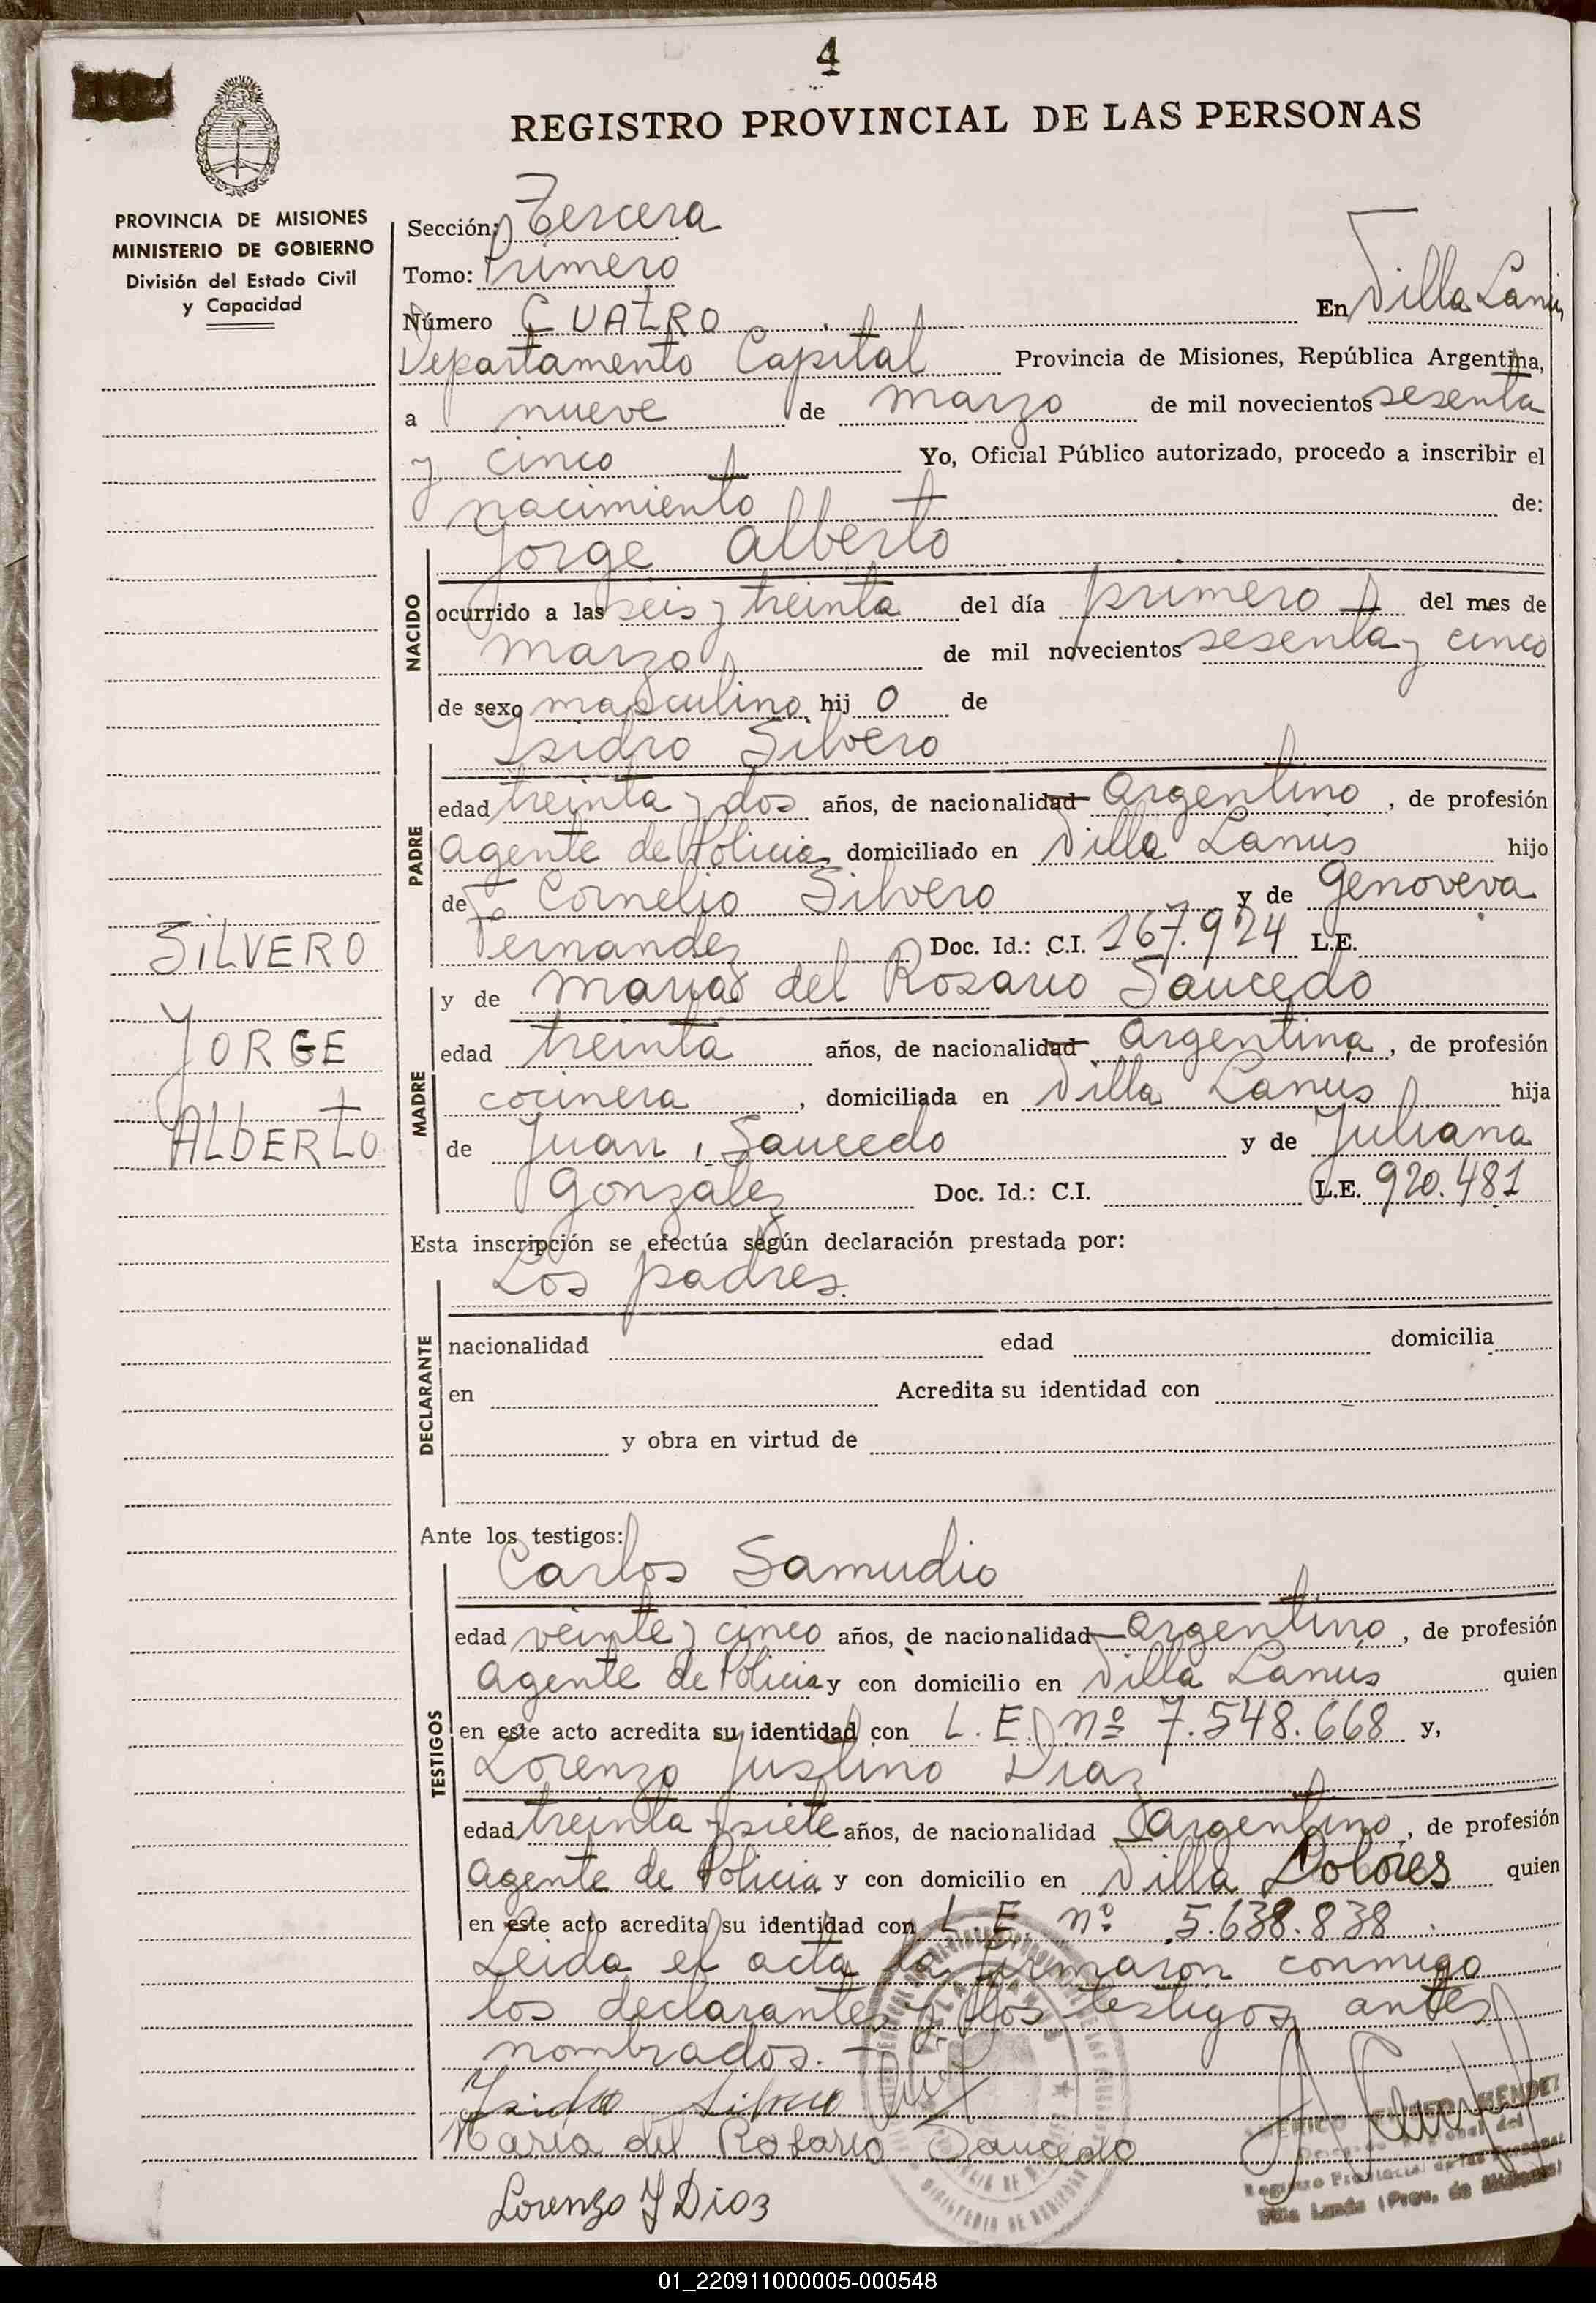 4
REGISTRO PROVINCIAL DE LAS PERSONAS
PROVINCIA DE MISIONES
MINISTERIO DE GOBIERNO
División del Estado Civil
y Capacidad
Sección: Tercera
Tomo: Primero
Número CUATRO En Villa Lanús
Departamento Capital Provincia de Misiones, República Argentina,
a nueve de marzo de mil novecientos sesenta
y cinco Yo, Oficial Público autorizado, procedo a inscribir el
nacimiento de:
NACIDO
Jorge Alberto
ocurrido a las seis y treinta del día primero del mes de
marzo de mil novecientos sesenta y cinco
de sexo masculino hijo de
PADRE
Isidro Silvero
edad treinta y dos años, de nacionalidad Argentino, de profesión
Agente de Policia domiciliado en Villa Lanús hijo
de Cornelio Silvero y de Genoveva
Fernandez Doc. Id.: C.I. 167.924 L.E.
SILVERO
JORGE
ALBERTO
MADRE
y de Maria del Rosario Saucedo
edad treinta años, de nacionalidad Argentina, de profesión
cocinera, domiciliada en Villa Lanús hija
de Juan Saucedo y de Juliana
Gonzalez Doc. Id.: C.I. L.E. 920.481
Esta inscripción se efectúa según declaración prestada por:
DECLARANTE
Los padres.
nacionalidad edad domicilia
en Acredita su identidad con
y obra en virtud de
Ante los testigos:
TESTIGOS
Carlos Samudio
edad veinte y cinco años, de nacionalidad Argentino, de profesión
Agente de Policia y con domicilio en Villa Lanús quien
en este acto acredita su identidad con L.E. nº 7.548.668 y,
Lorenzo Justino Diaz
edad treinta y siete años, de nacionalidad Argentino, de profesión
Agente de Policia y con domicilio en Villa Dolores quien
en este acto acredita su identidad con L.E. nº 5.638.838.
Leida el acta la firmaron conmigo
los declarantes y los testigos antes
nombrados.
Isidro Silvero
Maria del Rosario Saucedo
Lorenzo J Diaz
MENDEZ
Registro Provincial de las Personas
Villa Lanús (Prov. de Misiones)
01_220911000005-000548